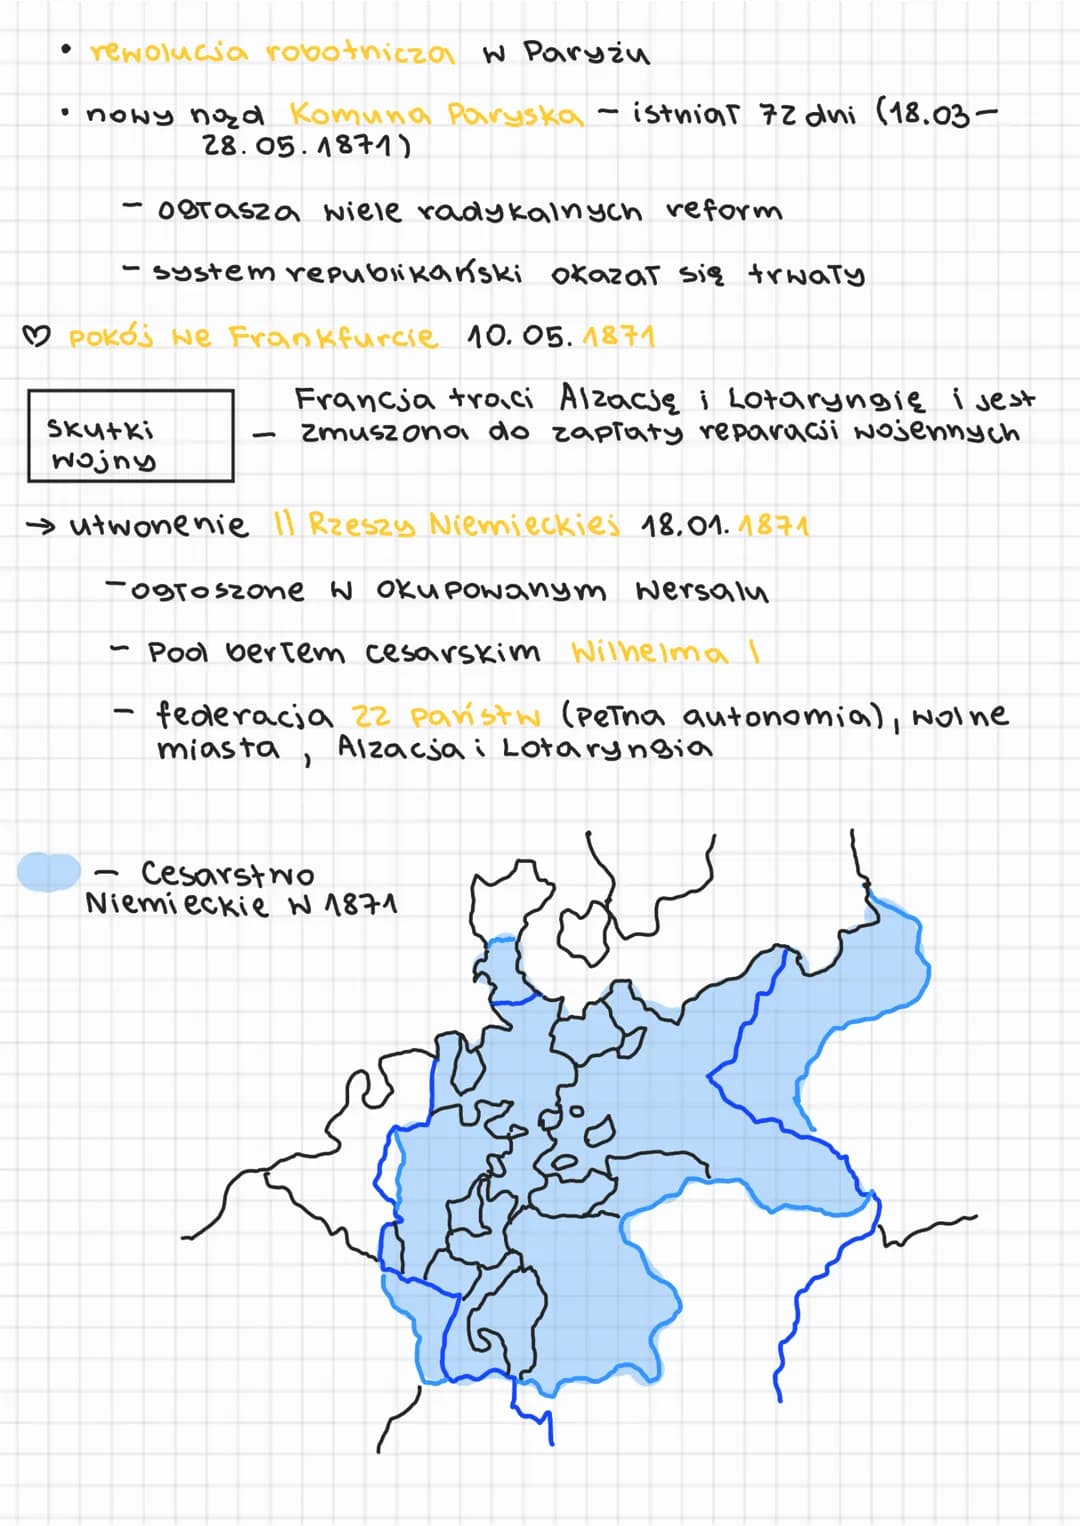 • rewolucja robotnicza w Paryżu
• nowy rząd Komuna Paryska – istniał 72 dni (18.03–
28.05.1871)
– ogłasza wiele radykalnych reform
– system republikański okazał się trwały
♡ pokój we Frankfurcie 10.05.1871
Skutki
wojny
Francja traci Alzację i Lotaryngię i jest
– zmuszona do zapłaty reparacji wojennych
→ utworzenie II Rzeszy Niemieckiej 18.01.1871
– ogłoszone w okupowanym Wersalu
– Pod berłem cesarskim Wilhelma I
– federacja 22 państw (pełna autonomia), wolne
miasta, Alzacja i Lotaryngia
– Cesarstwo
Niemieckie w 1871